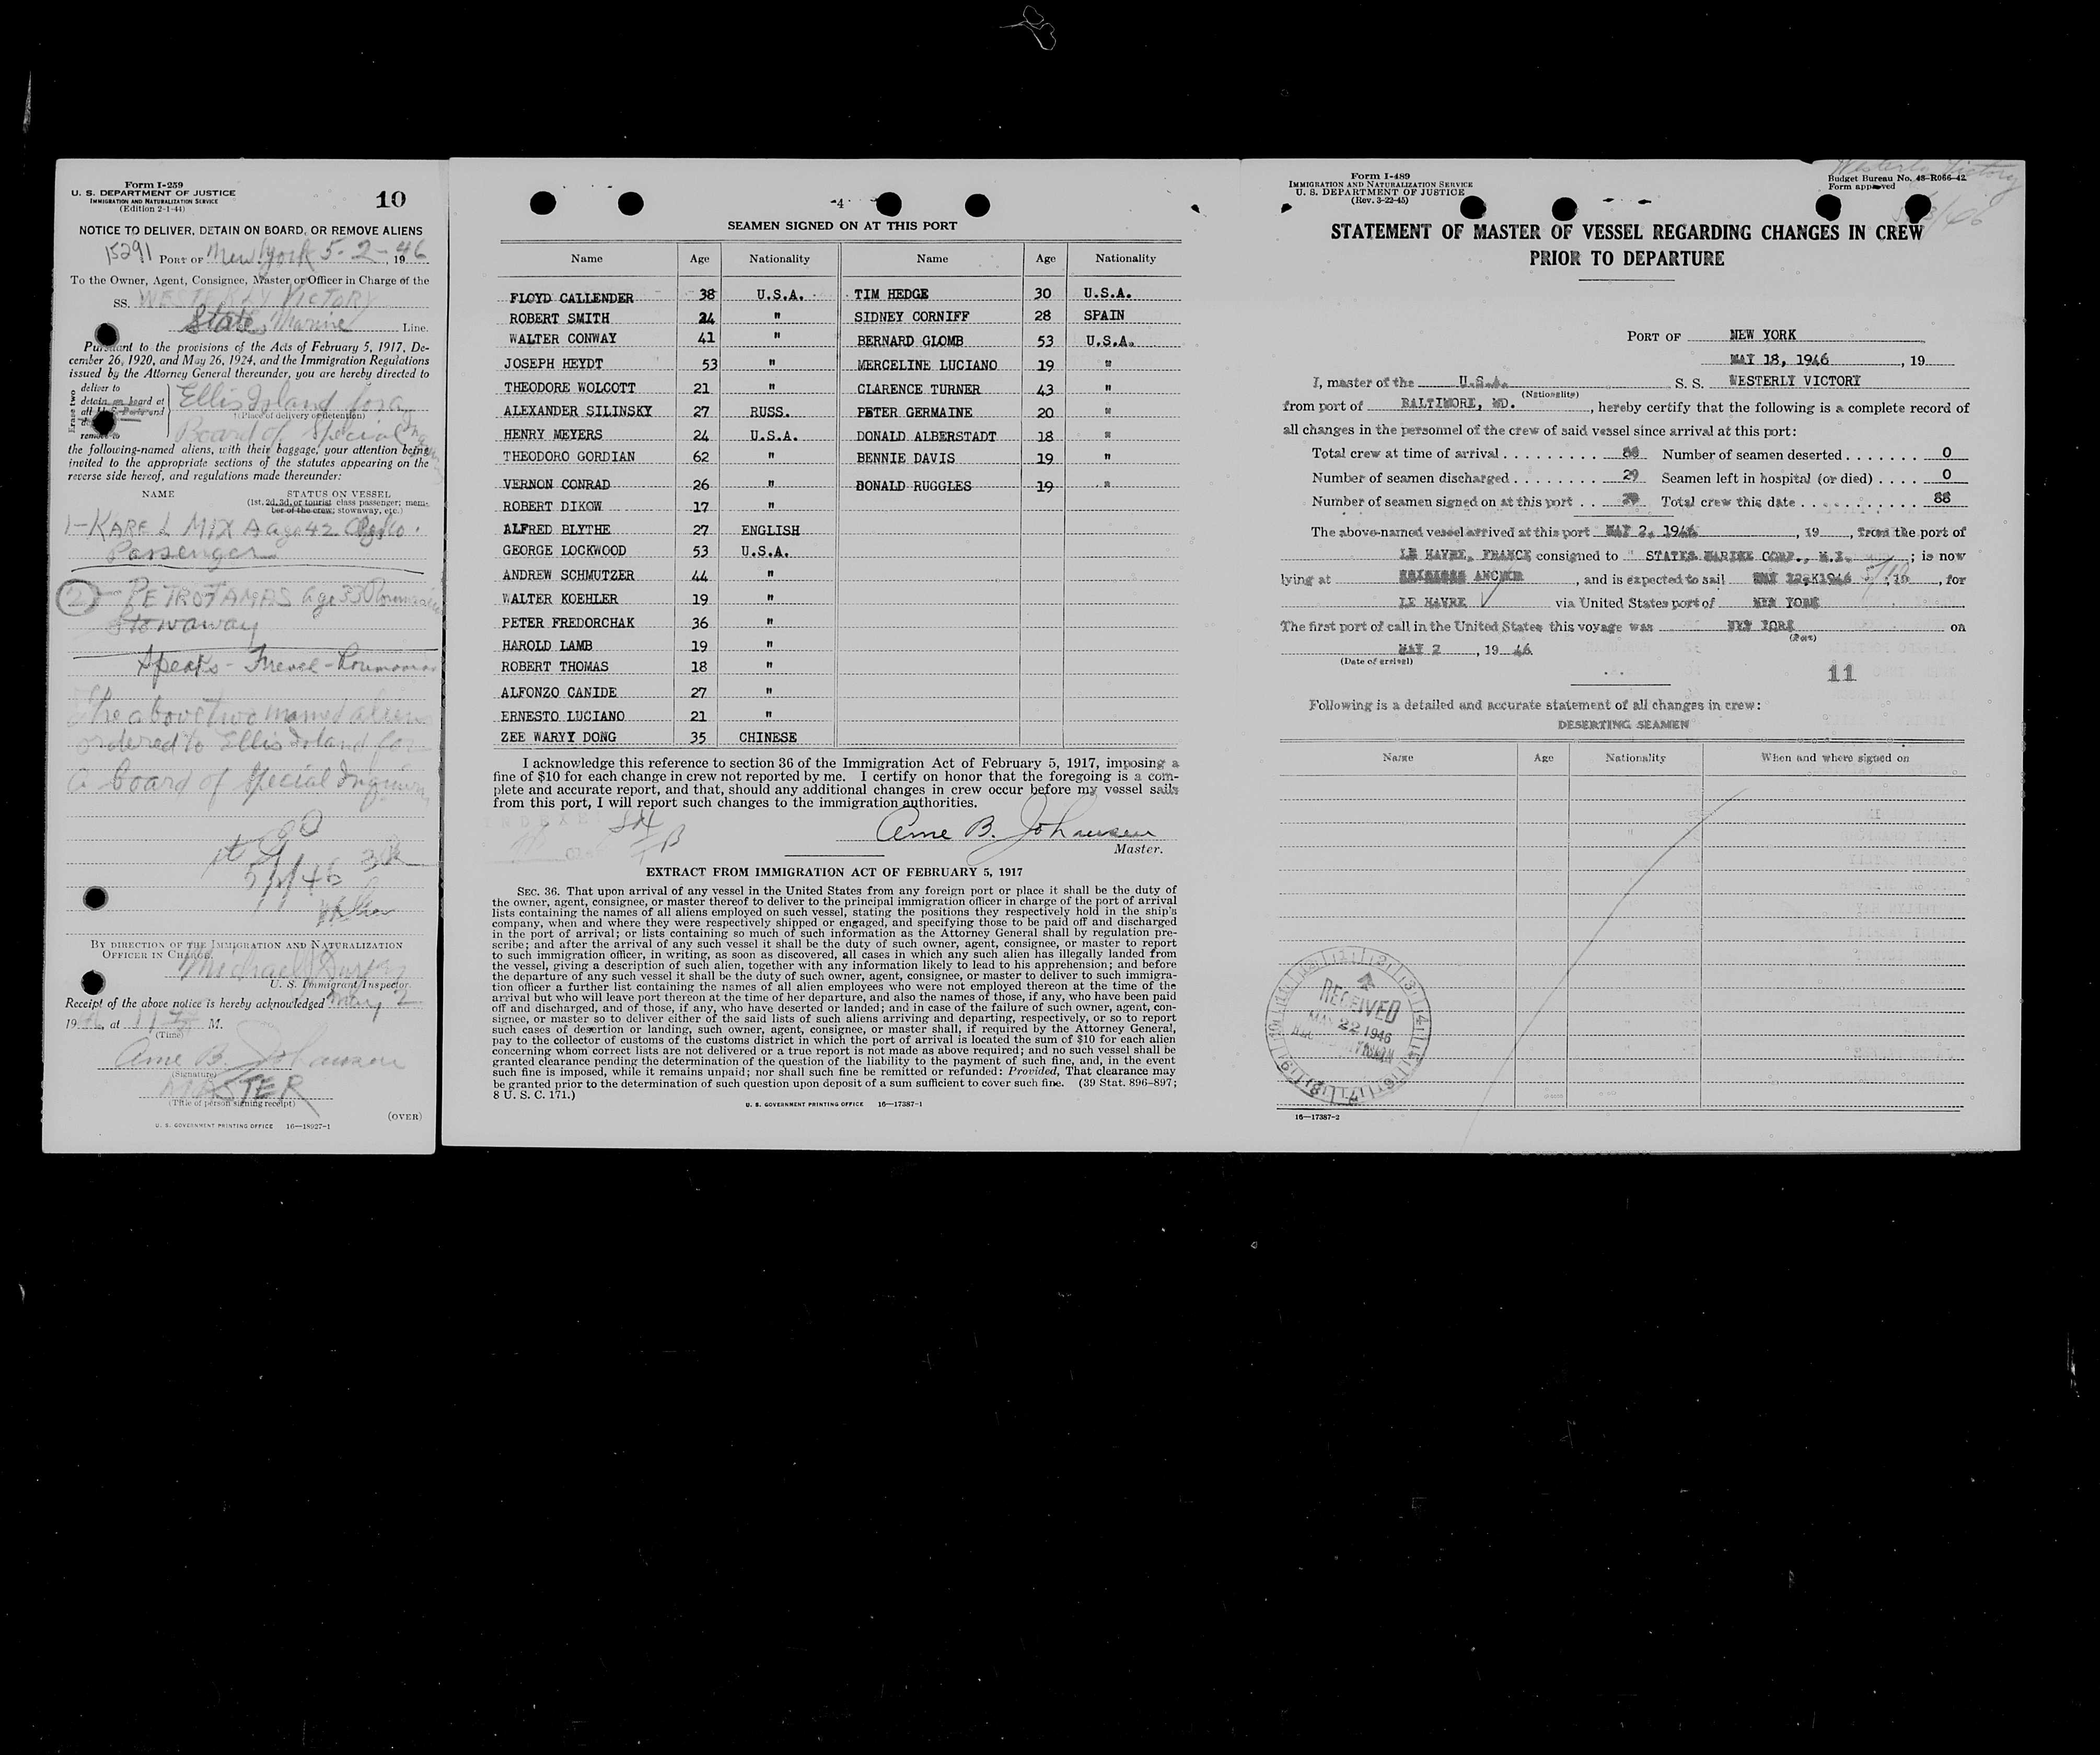 Form I-259
U. S. DEPARTMENT OF JUSTICE
IMMIGRATION AND NATURALIZATION SERVICE
(Edition 2-1-44)
10
NOTICE TO DELIVER, DETAIN ON BOARD, OR REMOVE ALIENS
15291 PORT OF New York 5-2-, 1946
To the Owner, Agent, Consignee, Master or Officer in Charge of the
SS. WESTERLY VICTORY
States Marine Line.
Pursuant to the provisions of the Acts of February 5, 1917, De-
cember 26, 1920, and May 26, 1924, and the Immigration Regulations
issued by the Attorney General thereunder, you are hereby directed to
Erase two
deliver to
detain on board at
remove to
Ellis Island for a
(Place of delivery or detention)
Board of Special
the following-named aliens, with their baggage, your attention being
invited to the appropriate sections of the statutes appearing on the
reverse side hereof, and regulations made thereunder:
NAME STATUS ON VESSEL
(1st, 2d, 3d, or tourist class passenger; mem-
ber of the crew; stowaway, etc.)
1- KAREL MIXA age 42
Passenger
2- PETRO TAMAS age 33
Stowaway
Speaks -
The above two named aliens
ordered to Ellis Island for
a Board of Special Inquiry
BY DIRECTION OF THE IMMIGRATION AND NATURALIZATION
OFFICER IN CHARGE.
Michael
U. S. Immigrant Inspector.
Receipt of the above notice is hereby acknowledged May 2
19 , at 11 M.
(Time)
Arne B. Johansen
(Signature)
MASTER
(Title of person signing receipt)
(OVER)
U. S. GOVERNMENT PRINTING OFFICE 16—18927-1
-4-
SEAMEN SIGNED ON AT THIS PORT
Name Age Nationality Name Age Nationality
FLOYD CALLENDER 38 U.S.A. TIM HEDGE 30 U.S.A.
ROBERT SMITH 24 " SIDNEY CORNIFF 28 SPAIN
WALTER CONWAY 41 " BERNARD GLOMB 53 U.S.A.
JOSEPH HEYDT 53 " MERCELINE LUCIANO 19 "
THEODORE WOLCOTT 21 " CLARENCE TURNER 43 "
ALEXANDER SILINSKY 27 RUSS. PETER GERMAINE 20 "
HENRY MEYERS 24 U.S.A. DONALD ALBERSTADT 18 "
THEODORO GORDIAN 62 " BENNIE DAVIS 19 "
VERNON CONRAD 26 " DONALD RUGGLES 19 "
ROBERT DIKOW 17 "
ALFRED BLYTHE 27 ENGLISH
GEORGE LOCKWOOD 53 U.S.A.
ANDREW SCHMUTZER 44 "
WALTER KOEHLER 19 "
PETER FREDORCHAK 36 "
HAROLD LAMB 19 "
ROBERT THOMAS 18 "
ALFONZO CANIDE 27 "
ERNESTO LUCIANO 21 "
ZEE WARYY DONG 35 CHINESE
I acknowledge this reference to section 36 of the Immigration Act of February 5, 1917, imposing a
fine of $10 for each change in crew not reported by me. I certify on honor that the foregoing is a com-
plete and accurate report, and that, should any additional changes in crew occur before my vessel sails
from this port, I will report such changes to the immigration authorities.
Arne B. Johansen
Master.
EXTRACT FROM IMMIGRATION ACT OF FEBRUARY 5, 1917
SEC. 36. That upon arrival of any vessel in the United States from any foreign port or place it shall be the duty of
the owner, agent, consignee, or master thereof to deliver to the principal immigration officer in charge of the port of arrival
lists containing the names of all aliens employed on such vessel, stating the positions they respectively hold in the ship's
company, when and where they were respectively shipped or engaged, and specifying those to be paid off and discharged
in the port of arrival; or lists containing so much of such information as the Attorney General shall by regulation pre-
scribe; and after the arrival of any such vessel it shall be the duty of such owner, agent, consignee, or master to report
to such immigration officer, in writing, as soon as discovered, all cases in which any such alien has illegally landed from
the vessel, giving a description of such alien, together with any information likely to lead to his apprehension; and before
the departure of any such vessel it shall be the duty of such owner, agent, consignee, or master to deliver to such immigra-
tion officer a further list containing the names of all alien employees who were not employed thereon at the time of the
arrival but who will leave port thereon at the time of her departure, and also the names of those, if any, who have been paid
off and discharged, and of those, if any, who have deserted or landed; and in case of the failure of such owner, agent, con-
signee, or master so to deliver either of the said lists of such aliens arriving and departing, respectively, or so to report
such cases of desertion or landing, such owner, agent, consignee, or master shall, if required by the Attorney General,
pay to the collector of customs of the customs district in which the port of arrival is located the sum of $10 for each alien
concerning whom correct lists are not delivered or a true report is not made as above required; and no such vessel shall be
granted clearance pending the determination of the question of the liability to the payment of such fine, and, in the event
such fine is imposed, while it remains unpaid; nor shall such fine be remitted or refunded: Provided, That clearance may
be granted prior to the determination of such question upon deposit of a sum sufficient to cover such fine. (39 Stat. 896-897;
8 U. S. C. 171.)
U. S. GOVERNMENT PRINTING OFFICE 16—17387-1
Form I-489
IMMIGRATION AND NATURALIZATION SERVICE
U. S. DEPARTMENT OF JUSTICE
(Rev. 3-22-45)
Westerly Victory
Budget Bureau No. 43-R066-42
Form approved
STATEMENT OF MASTER OF VESSEL REGARDING CHANGES IN CREW
PRIOR TO DEPARTURE
PORT OF NEW YORK
MAY 18, 1946, 19
I, master of the U.S.A. S. S. WESTERLY VICTORY
(Nationality)
from port of BALTIMORE, MD., hereby certify that the following is a complete record of
all changes in the personnel of the crew of said vessel since arrival at this port:
Total crew at time of arrival 88 Number of seamen deserted 0
Number of seamen discharged 29 Seamen left in hospital (or died) 0
Number of seamen signed on at this port 29 Total crew this date 88
The above-named vessel arrived at this port MAY 2, 1946, 19 , from the port of
LE HAVRE, FRANCE consigned to STATES MARINE CORP., N.Y. ; is now
lying at , and is expected to sail , for
LE HAVRE via United States port of NEW YORK
The first port of call in the United States this voyage was NEW YORK on
(Port)
MAY 2, 19 46
(Date of arrival)
11
Following is a detailed and accurate statement of all changes in crew:
DESERTING SEAMEN
Name Age Nationality When and where signed on
RECEIVED
MAY 22 1946
16—17387-2